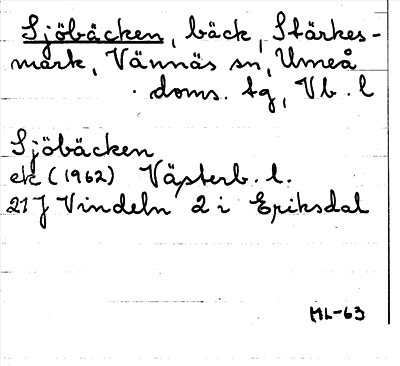 Sjöbäcken, bäck, Stärkes-
mark, Vännäs sn, Umeå
doms. tg, Vb. l
Sjöbäcken
ek (1962) Västerb. l.
21 J Vindeln 2 i Eriksdal
ML-63